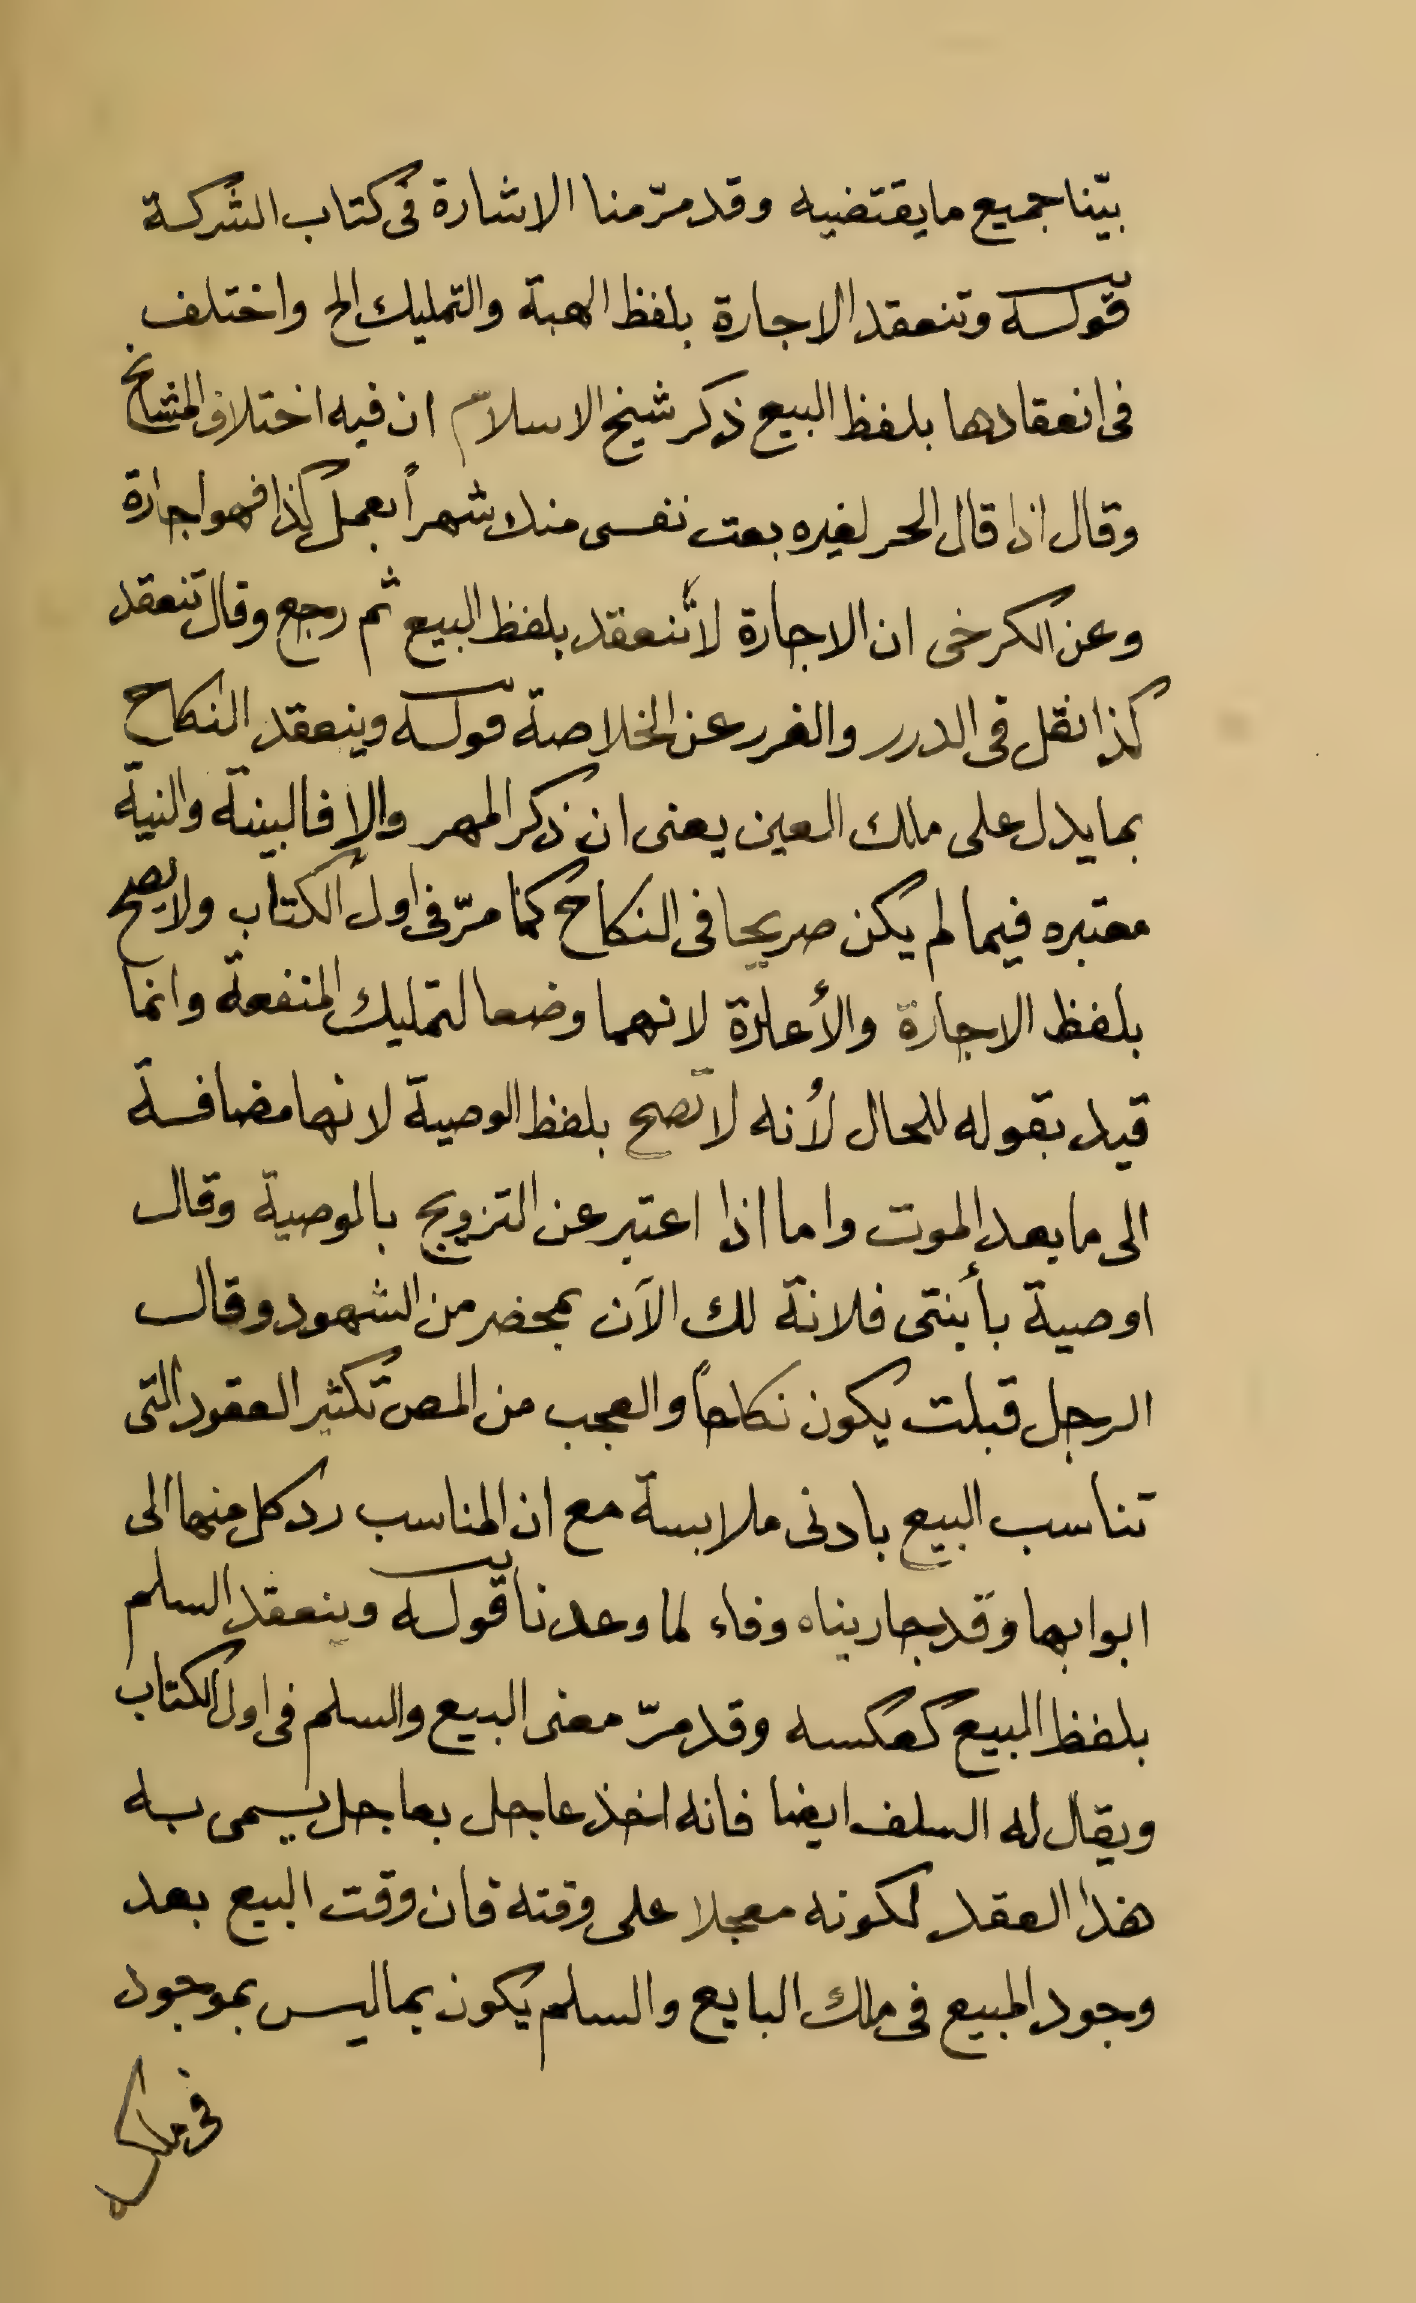 بيّنا جميع ما يقتضيه وقد مرّ منا الاشارة فى كتاب الشركة
قوله وتنعقد الاجارة بلفظ الهبة والتمليك الخ واختلف
فى انعقادها بلفظ البيع ذكر شيخ الاسلام ان فيه اختلاف المشايخ
وقال اذا قال الحر لغيره بعت نفسى منك شهراً بعمل كذا فهو اجارة
وعن الكرخى ان الاجارة لا تنعقد بلفظ البيع ثم رجع وقال تنعقد
كذا نقل فى الدرر والغرر عن الخلاصة قوله وينعقد النكاح
بما يدل على ملك العين يعنى ان ذكر المهر والا فالبينة والنية
معتبره فيما لم يكن صريحا فى النكاح كما مرّ فى اول الكتاب ولا يصح
بلفظ الاجارة والأعارة لانهما وضعا لتمليك المنفعة وانما
قيد بقوله للحال لأنه لا تصح بلفظ الوصية لانها مضافة
الى ما بعد الموت واما اذا اعتبر عن التزويج بالوصية وقال
اوصية بأبنتى فلانة لك الآن بمحضر من الشهود وقال
الرجل قبلت يكون نكاحاً والعجب من المص تكثير العقود التى
تناسب البيع بادنى ملابسة مع ان المناسب رد كل منها الى
ابوابها وقد جاريناه وفاء لما وعدنا قوله وينعقد السلم
بلفظ المبيع كعكسه وقد مرّ معنى البيع والسلم فى اول الكتاب
ويقال له السلف ايضا فانه اخذ عاجل بعاجل يسمى به
هذا العقد لكونه معجلا على وقته فان وقت البيع بعد
وجود المبيع فى ملك البايع والسلم يكون بما ليس بموجود
فى ملكه